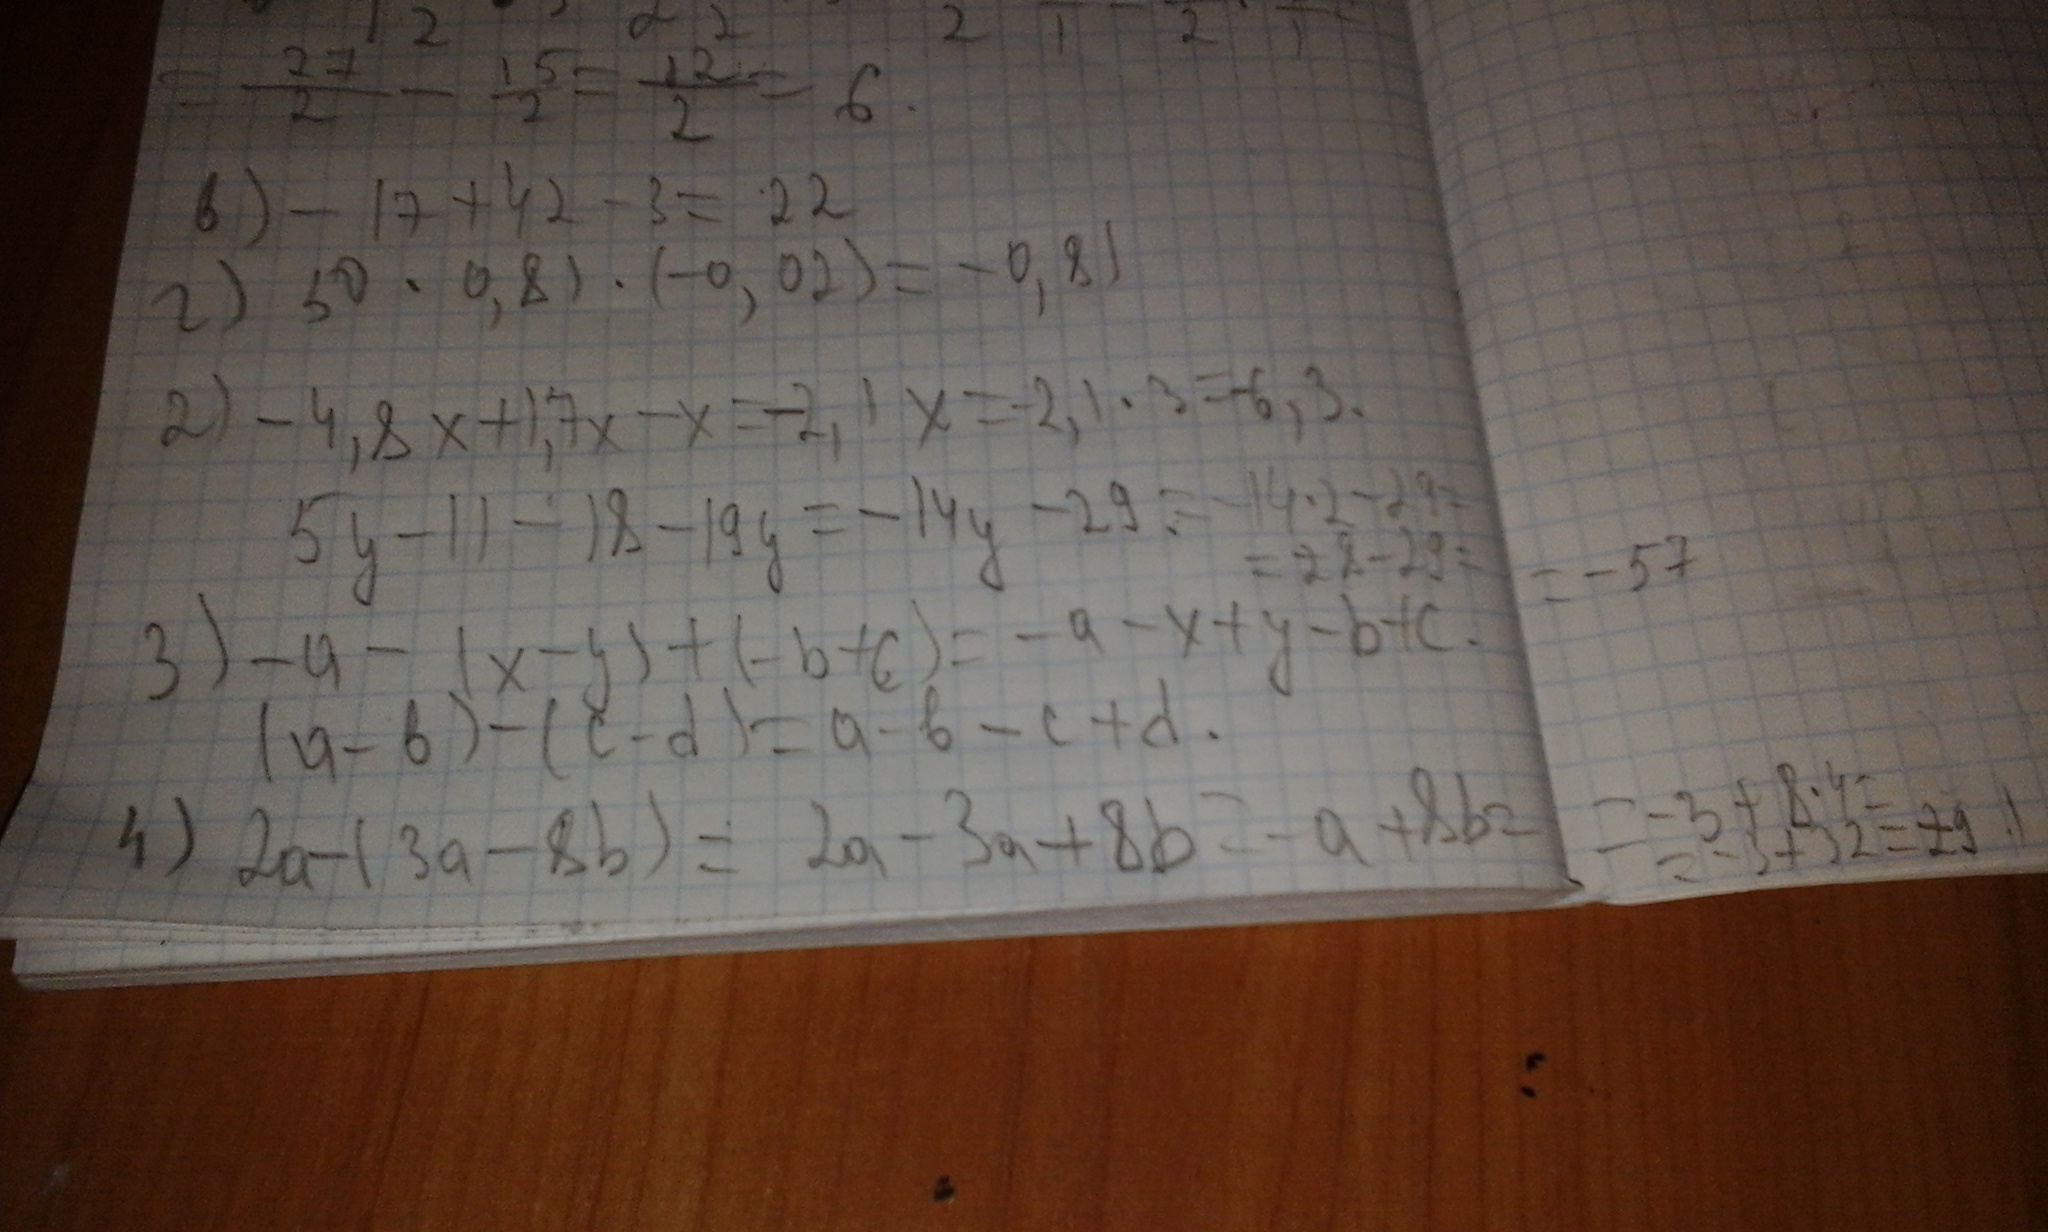 = 27/2 - 15/2 = 12/2 = 6.
в) - 17 + 42 - 3 = 22
г) 50 · 0,81 · (-0,02) = -0,81
2) -4,8x + 1,7x - x = -2,1x = -2,1 · 3 = -6,3.
5y - 11 - 18 - 19y = -14y - 29 = -14·2 - 29 =
= -28 - 29 = = -57
3) -a - (x - y) + (-b + c) = -a - x + y - b + c.
(a - b) - (c - d) = a - b - c + d.
4) 2a - (3a - 8b) = 2a - 3a + 8b = -a + 8b = = -3 + 8·4 =
= -3 + 32 = 29